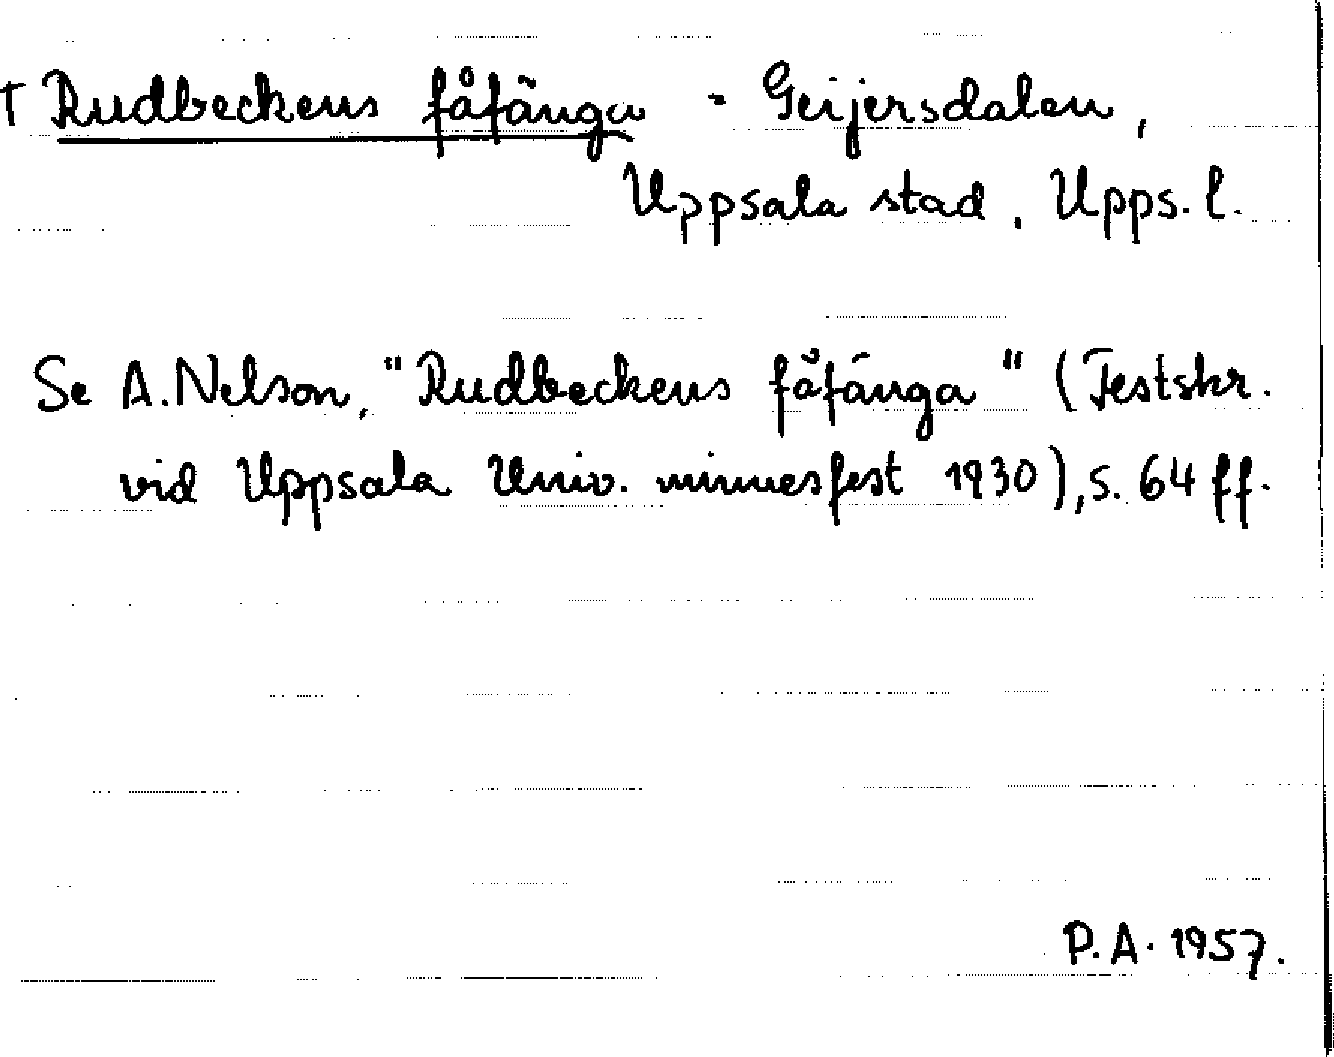 † Rudbeckens fåfänga = Geijersdalen,
Uppsala stad, Upps. l.
Se A. Nelson, "Rudbeckens fåfänga" (Festskr.
vid Uppsala Univ. minnesfest 1930), s. 64 ff.
P. A. 1957.